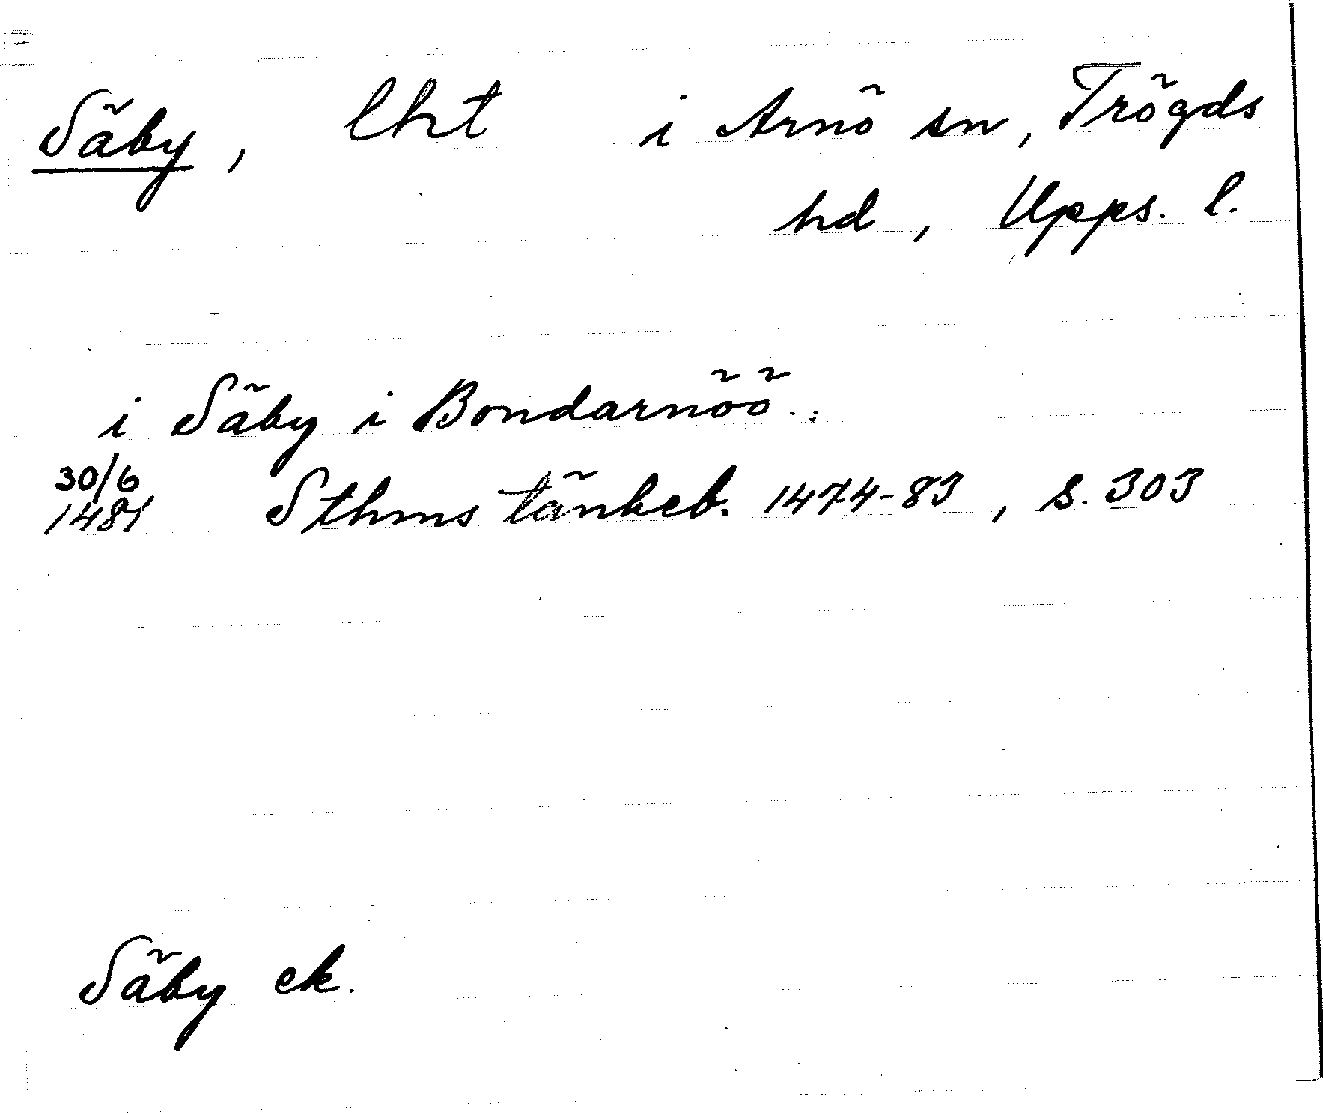 Säby, lht i Arnö sn, Trögds
hd, Upps. l.
i Säby i Bondarnöö.
30/6
1481 Sthms tänkeb. 1474-83, s. 303
Säby ek.